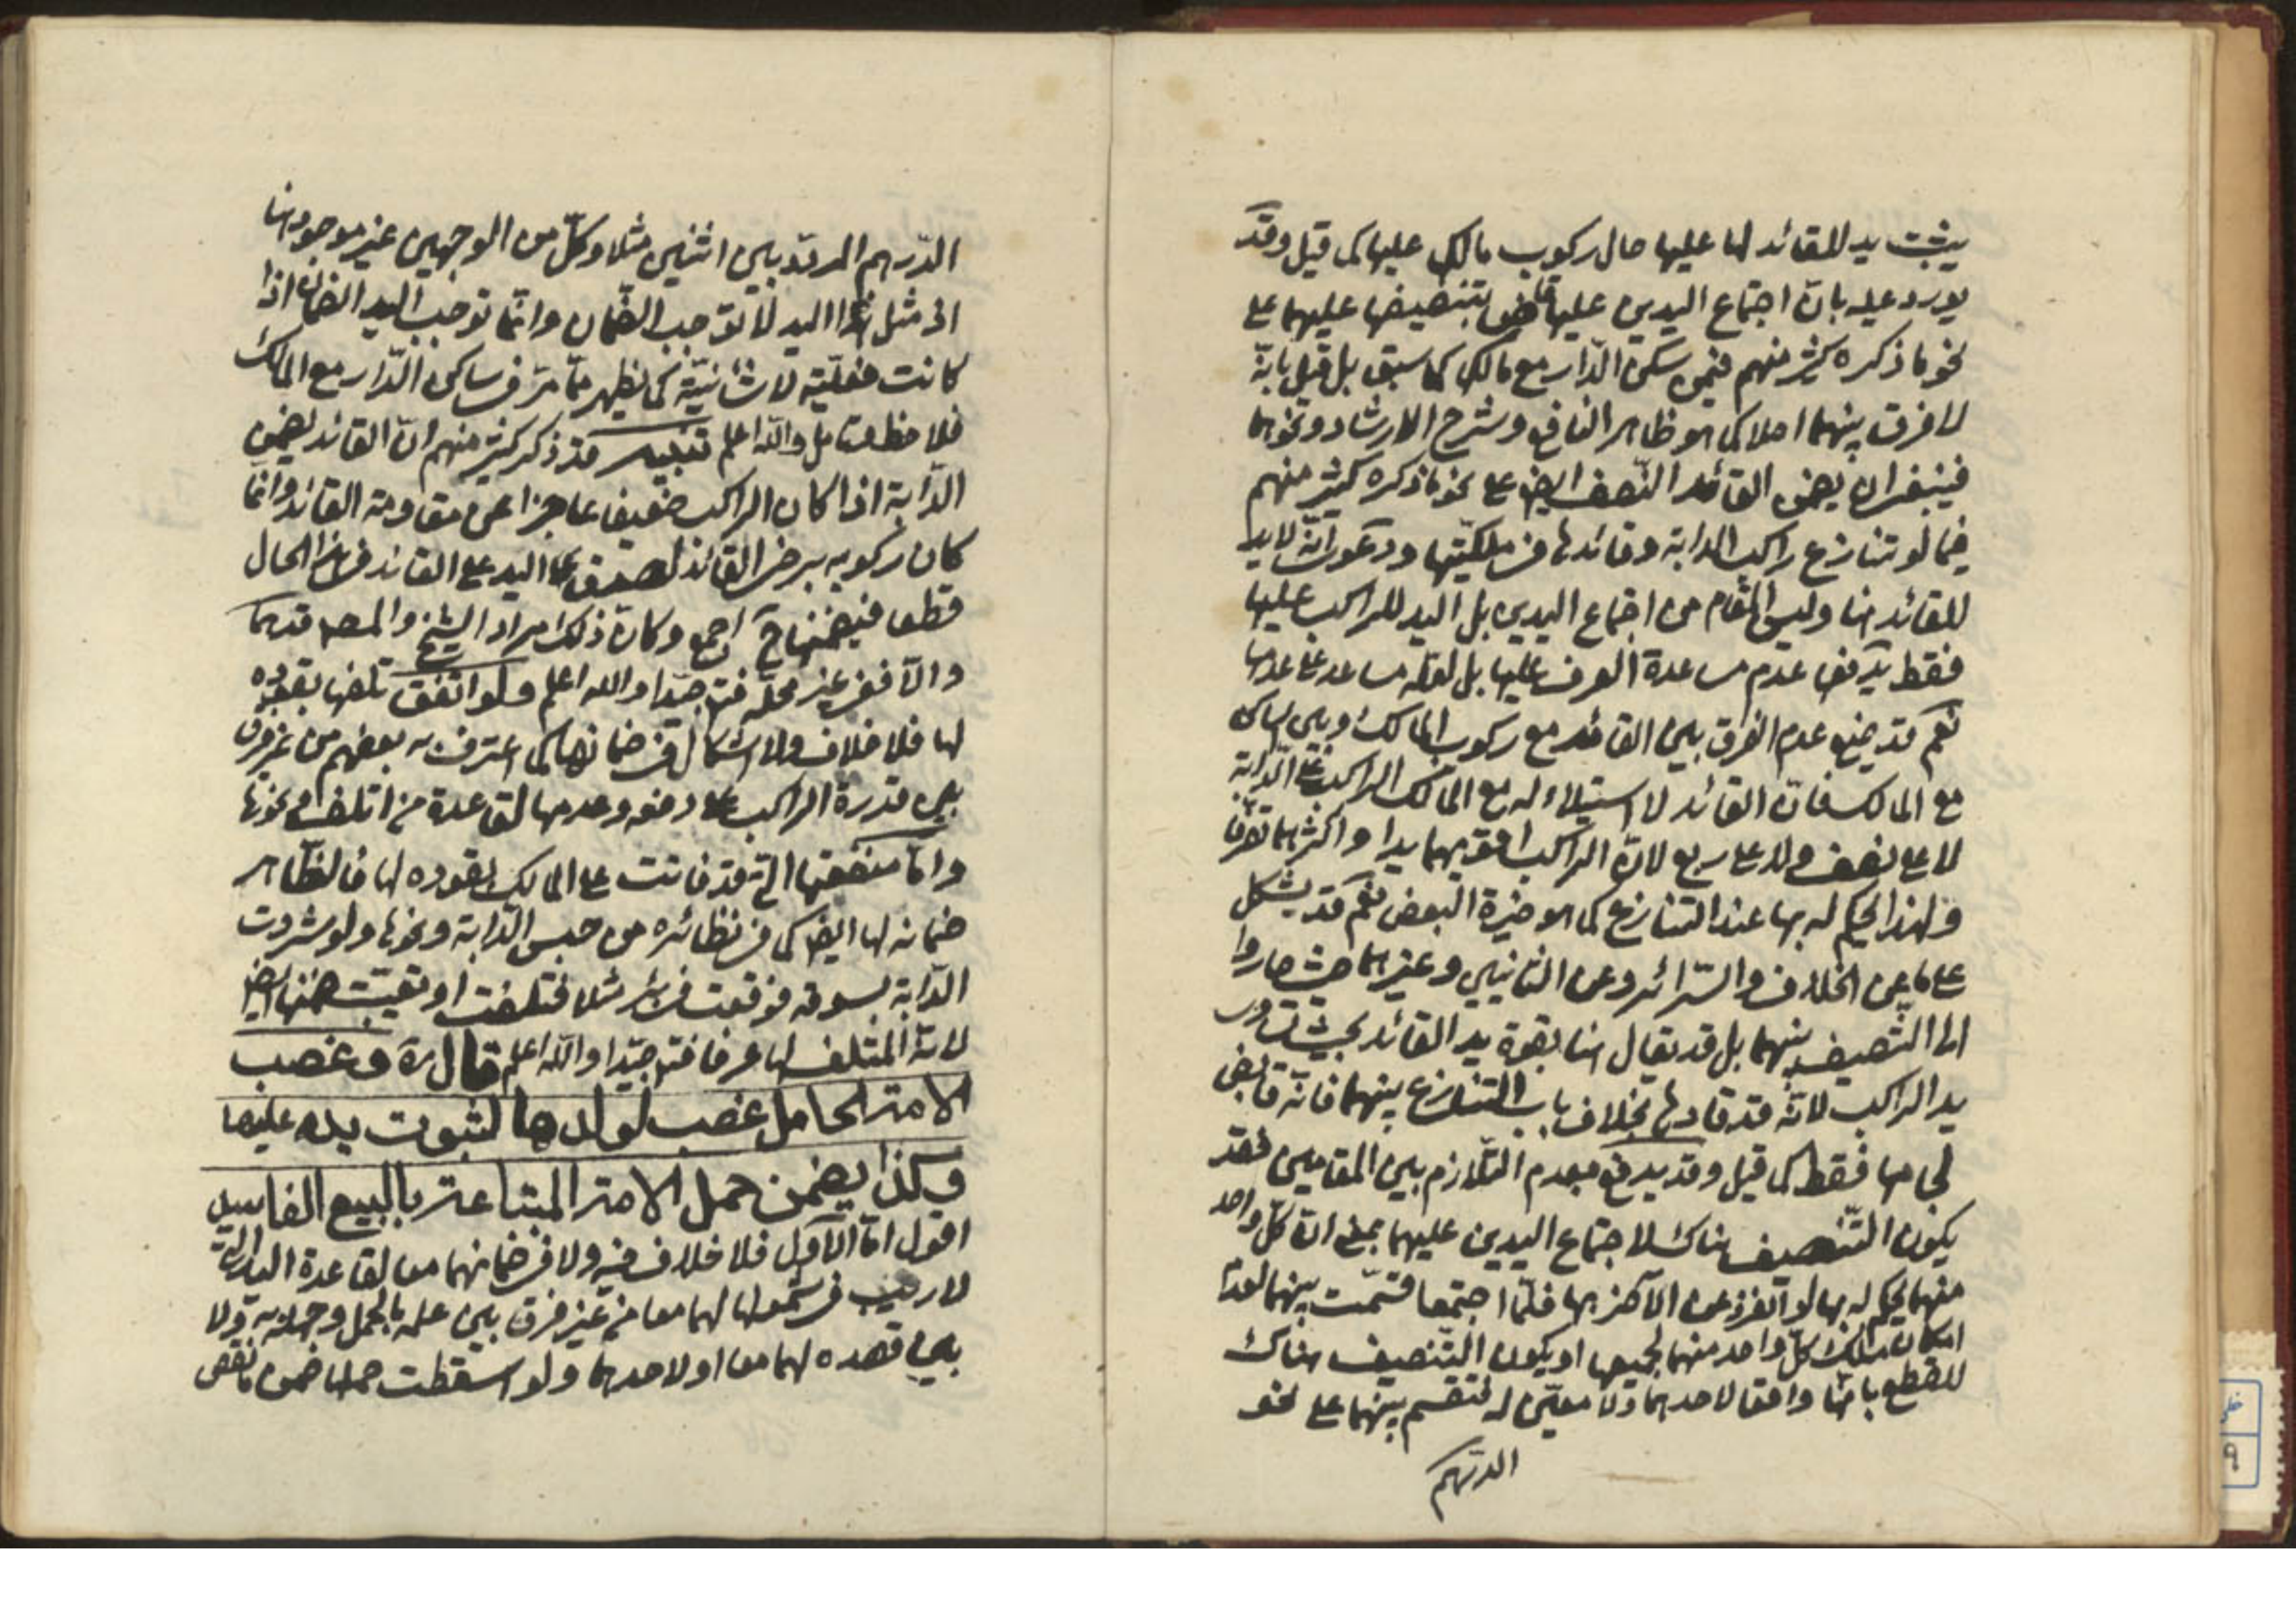 يثبت يد للقائد لها عليها حال ركوب مالك عليها كما قيل وقد
يورد عليه بانّ اجتماع اليدين عليها قاض بتنصيفها عليهما على
نحو ما ذكره كثير منهم فيمن سكن الدار مع مالك كما سبق بل قيل بانّه
لا فرق بينهما اصلا كما هو ظاهر النافع وشرح الارشاد ونحوهما
فينبغي ان يضمن القائد النّصف ايضا على نحو ما ذكره كثير منهم
فيما لو تنازع راكب الدابة وقائدها في ملكيّتها ودعوى انّه لا يد
للقائد هنا وليس المقام من اجتماع اليدين بل اليد للراكب عليها
فقط يدفعها عدم مساعدة العرف عليها بل لعلّه مساعد على عدمها
نعم قد يمنع عدم الفرق بين القائد مع ركوب المالك وبين الساكن
مع المالك فانّ القائد لا استيلاء له مع المالك الراكب على الدّابة
لا على نصف ولا على ربع لانّ الراكب اقويهما يدا واكثرهما تصرّفا
ولهذا يحكم له بها عند التنازع كما هو خيرة البعض نعم قد يشكل
على ما عن الخلاف والسّرائر وعن الثانيين وغيرهما حيث صاروا
الى التّنصيف بينهما بل قد يقال هنا بقوة يد القائد بحيث
يد الراكب لانّه قد قادها بخلاف باب التنازع بينهما فانّه قابض
لجامها فقط كما قيل وقد يدفع بعدم التّلازم بين المقامين فقد
يكون التّنصيف هناك لاجتماع اليدين عليهما بمعنى انّ كلّ واحد
منهما يحكم له بها لو انفرد عن الآخر بها فلمّا اجتمعا قسّمت بينهما لعدم
امكان ملك كلّ واحد منهما لجميعها او يكون التّنصيف هناك
للقطع بانّها واقعا لاحدهما ولا معيّن له فتقسم بينهما على نحو
الدرهم
الدّرهم المردّد بين اثنين مثلا وكلّ من الوجهين غير موجود هنا
اذ مثل هذا اليد لا توجب الضّمان وانّما توجب اليد الضمان اذا
كانت فعليّة لا شأنيّة كما يظهر ممّا مرّ في ساكن الدّار مع المالك
فلاحظ وتامل واللّه اعلم تنبيه قد ذكر كثير منهم انّ القائد يضمن
الدّابة اذا كان الراكب ضعيفا عاجزا عن مقاومة القائد وانّما
كان ركوبه برضى القائد لصدق اليد على القائد في هذا الحال
قطعا فيضمنها ح اجمع وكانّ ذلك مراد الشيخ والمص قدهما
والّا ففي غير محلّه فتر جيّدا واللّه اعلم ولو اتّفق تلفها بقوده
لها فلا خلاف ولا اشكال في ضمانها كما اعترف به بعضهم من غير فرق
بين قدرة الراكب على دفعه وعدمها لقاعدة من اتلف ونحوها
وامّا منفعتها الّتي قد فاتت على المالك بقوده لها فالظّاهر
ضمانه لها ايضا كما في نظائره من حبس الدّابة ونحوها ولو شردت
الدّابة بسوقه فوقعت في بئر مثلا فتلفت او تعيّبت ضمنها ايضا
لانّه المتلف لها عرفا فتر جيّدا واللّه اعلم قال ره وغصب
الامة الحامل غصب لولدها لثبوت يده عليها
وكذا يضمن حمل الامة المبتاعة بالبيع الفاسد
اقول امّا الاوّل فلا خلاف فيه ولا في ضمانهما معا لقاعدة اليد الّتي
لا ريب في شمولها لهما معا من غير فرق بين علمه بالحمل وجهله به ولا
بين قصده لهما معا او لاحدهما ولو اسقطت حملها ضمن ما نقص